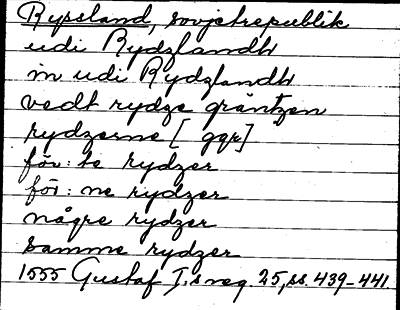 Ryssland, sovjetrepublik
udi Rydzlandh
in udi Rydzlandh
vedt rydze gräntzen
rydzerne [ggr]
för: te rydzer
för: ne rydzer
någre rydzer
samme rydzer
1555 Gustaf I:s reg. 25, ss. 439-441.